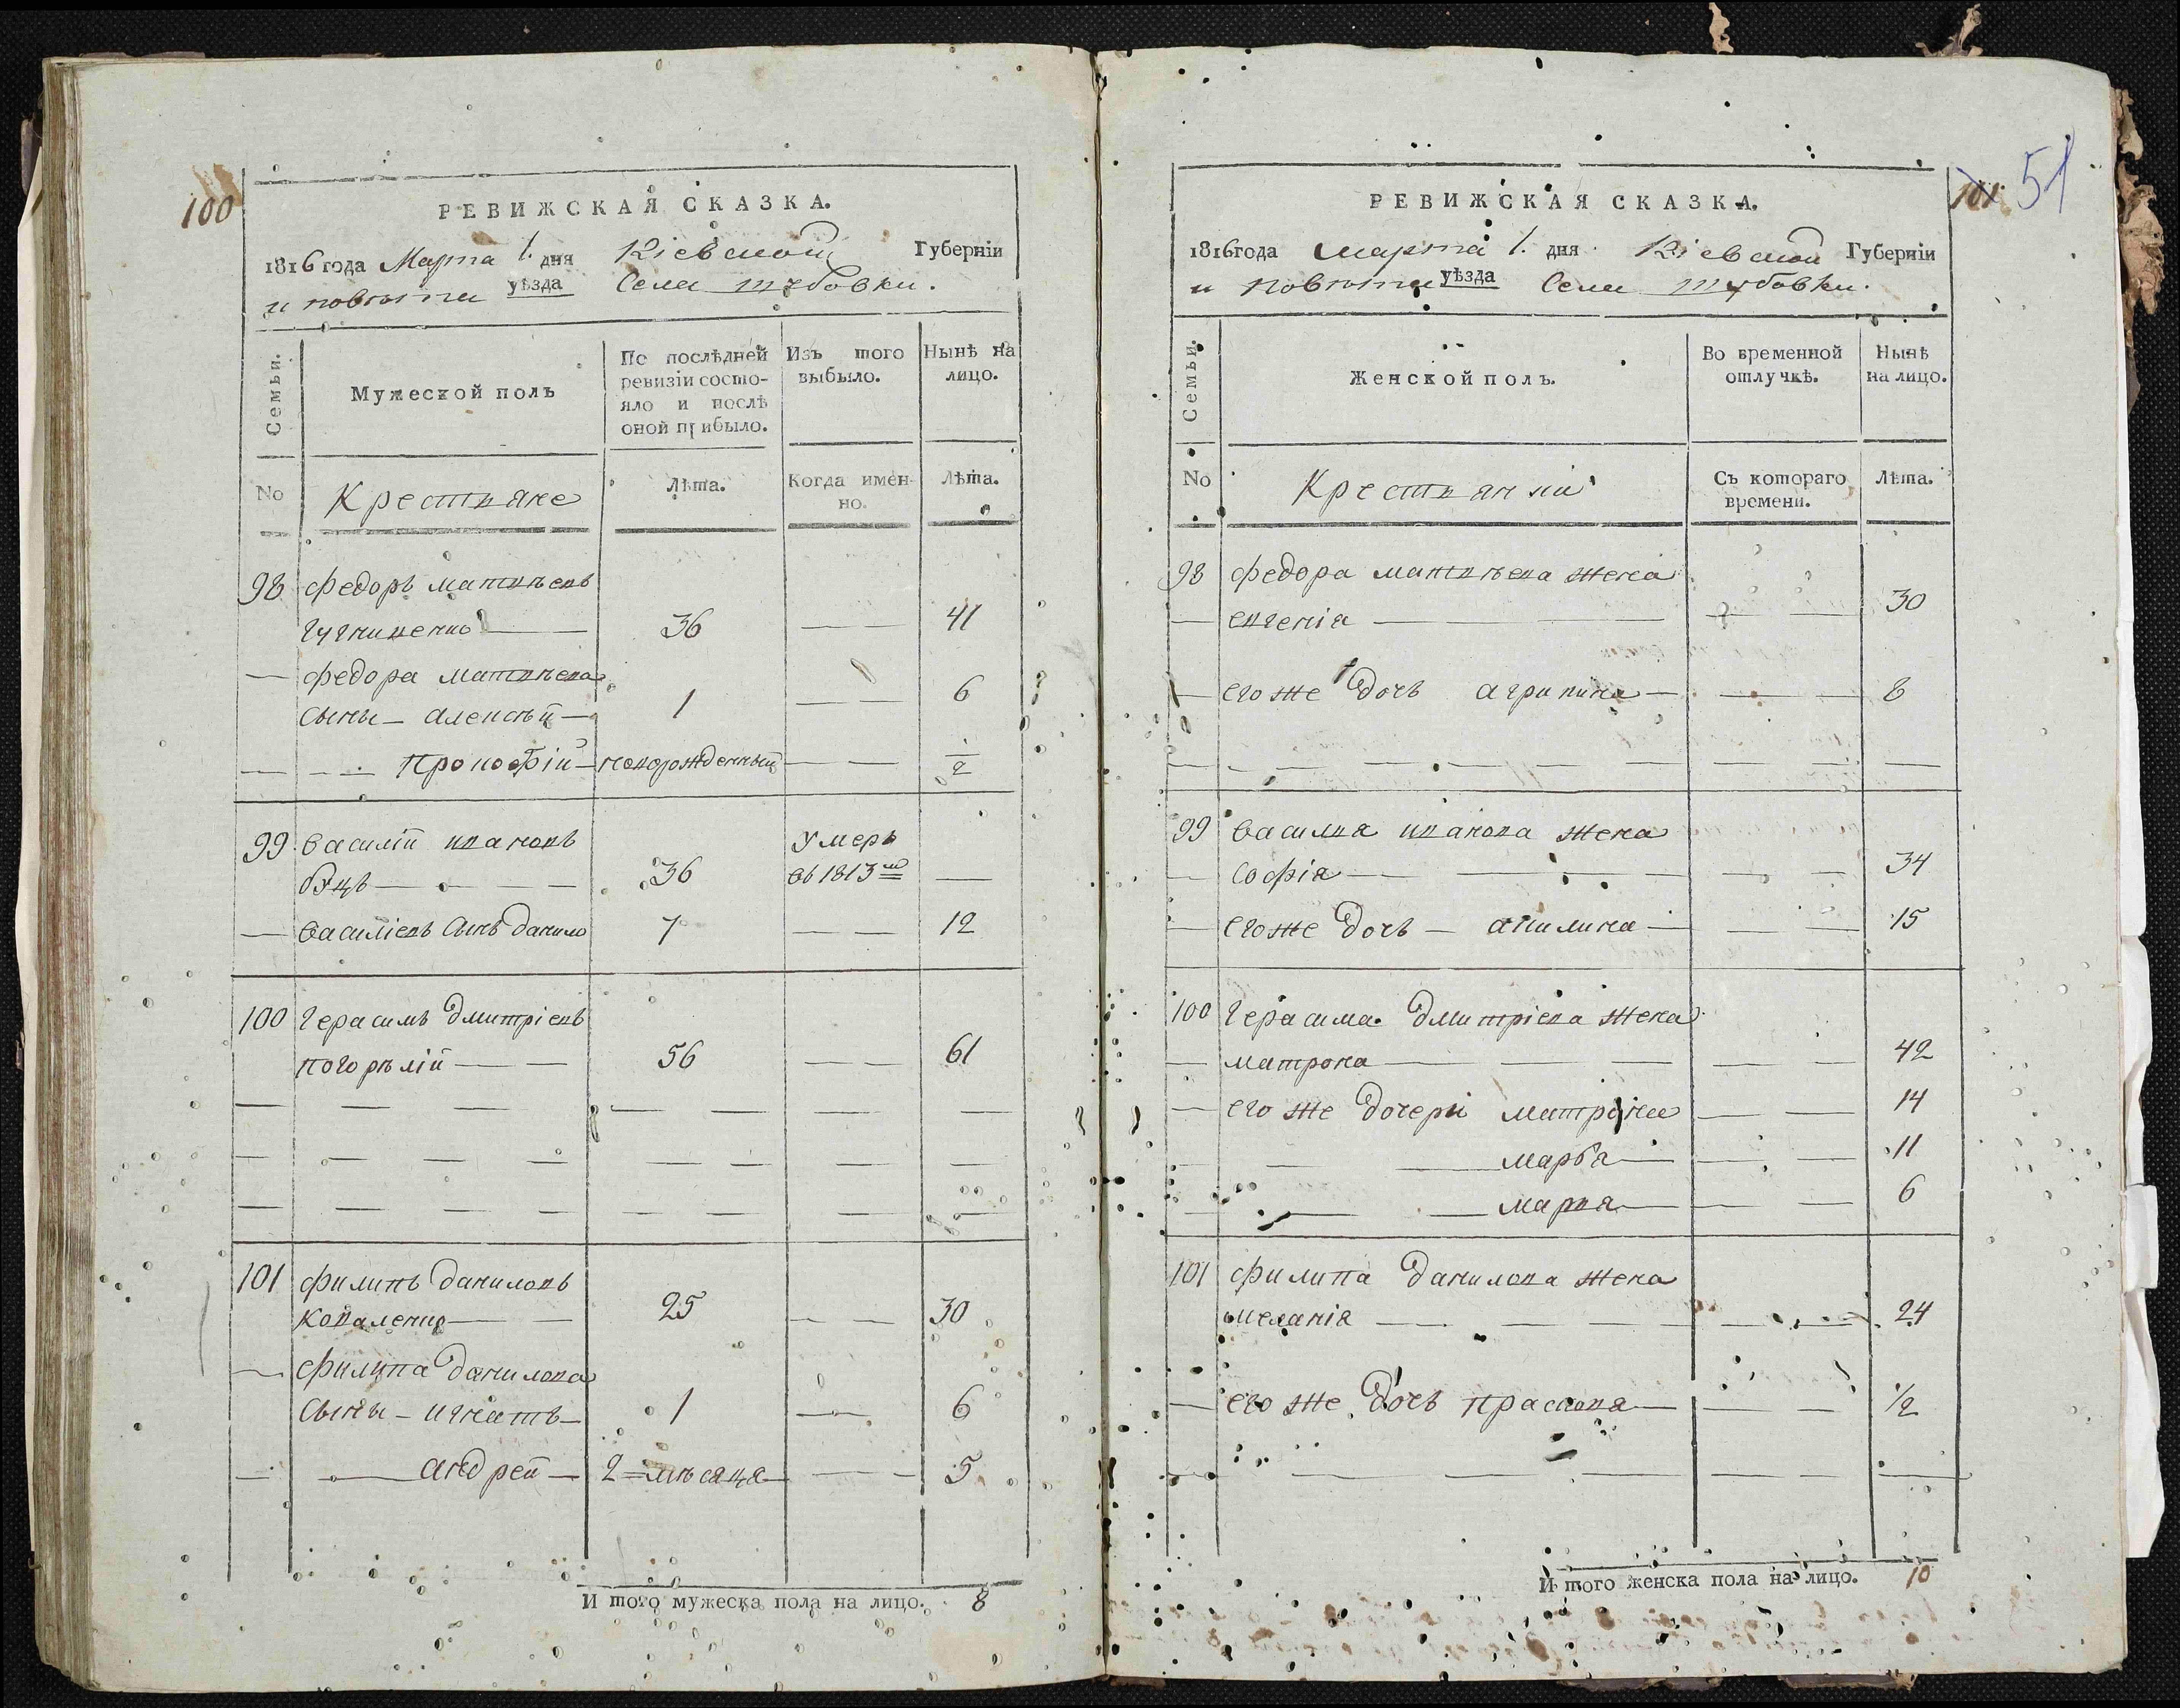 100
РЕВИЖСКАЯ СКАЗКА.
1816 года Марта 1. дня Кіевской Губерніи
и повѣта уѣзда Села шубовки.
Семьи.
Мужеской полъ
По послѣдней ревизіи состояло и послѣ оной прибыло.
Изъ того выбыло.
Нынѣ на лицо.
No
Крестьяне
Лѣта.
Когда именно.
Лѣта.
98 федоръ матвѣевъ
36 — — 41
— федора матвѣева
сыны — алексѣй — 1 — — 6
— — прокофій — новорожденный — — 1/2
99 василій ивановъ Умеръ
36 въ 1813м —
— василіевъ сынъ данило 7 — — 12
100 герасимъ дмитріевъ
погорѣлій — — 56 — — 61
101 филипъ даниловъ
коваленко — — 25 — — 30
— филипа данилова
сыны — игнатъ — 1 — 6
— — андрей — 2 = мѣсяца — — 5
И того мужеска пола на лицо. 8
101 51
РЕВИЖСКАЯ СКАЗКА.
1816 года марта 1. дня Кіевской Губерніи
и повѣта уѣзда Села шубовки.
Семьи.
Женской полъ.
Во временной отлучкѣ.
Нынѣ на лицо.
No
Крестьянки
Съ котораго времени.
Лѣта.
98 федора матвѣева жена
— евгенія — — — 30
— его же дочь агрипина — — — 8
99 василия иванова жена
— софія — — — 34
— его же дочь — акилина — — — 15
100 герасима дмитріева жена
— матрона — — — 42
— его же дочери матрона — — 14
— марфа — — — 11
— мария — — — 6
101 филипа данилова жена
меланія — — — 24
— его же дочь прасковя — — — 1/2
И того женска пола на лицо. 10